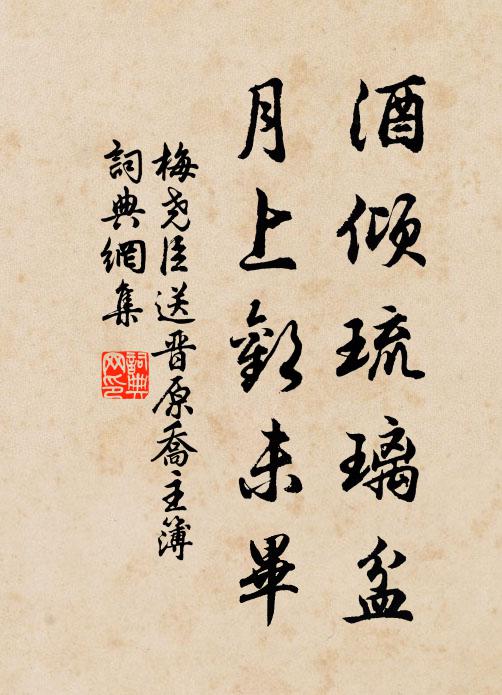 酒倾琉璃盆
月上歡未畢
梅尧臣送晋原喬主簿
詞典網集
詞典网印